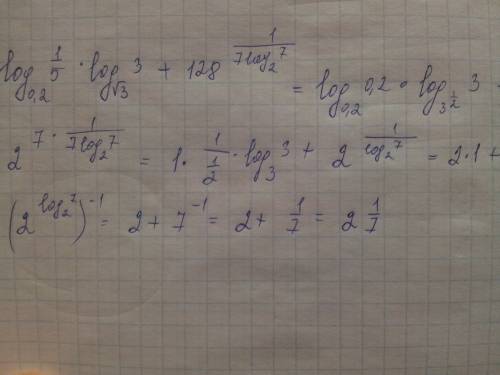 log_{0,2} 1/5 · log_{√3} 3 + 128^{1/(7log_2 7)} = log_{0,2} 0,2 · log_{3^{1/2}} 3
2^{7 · 1/(7log_2 7)} = 1 · 1/(1/2) · log_3 3 + 2^{1/(log_2 7)} = 2·1 +
(2^{log_2 7})^{-1} = 2 + 7^{-1} = 2 + 1/7 = 2 1/7